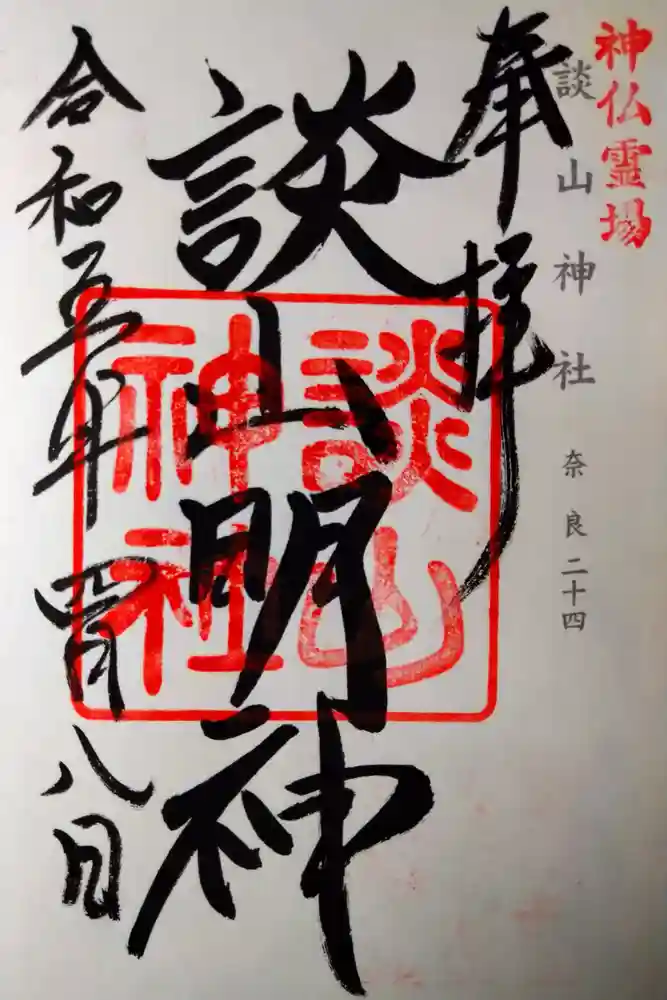 神仏霊場
談山神社 奈良二十四
奉拝
談山大明神
談山神社
令和五年四月八日